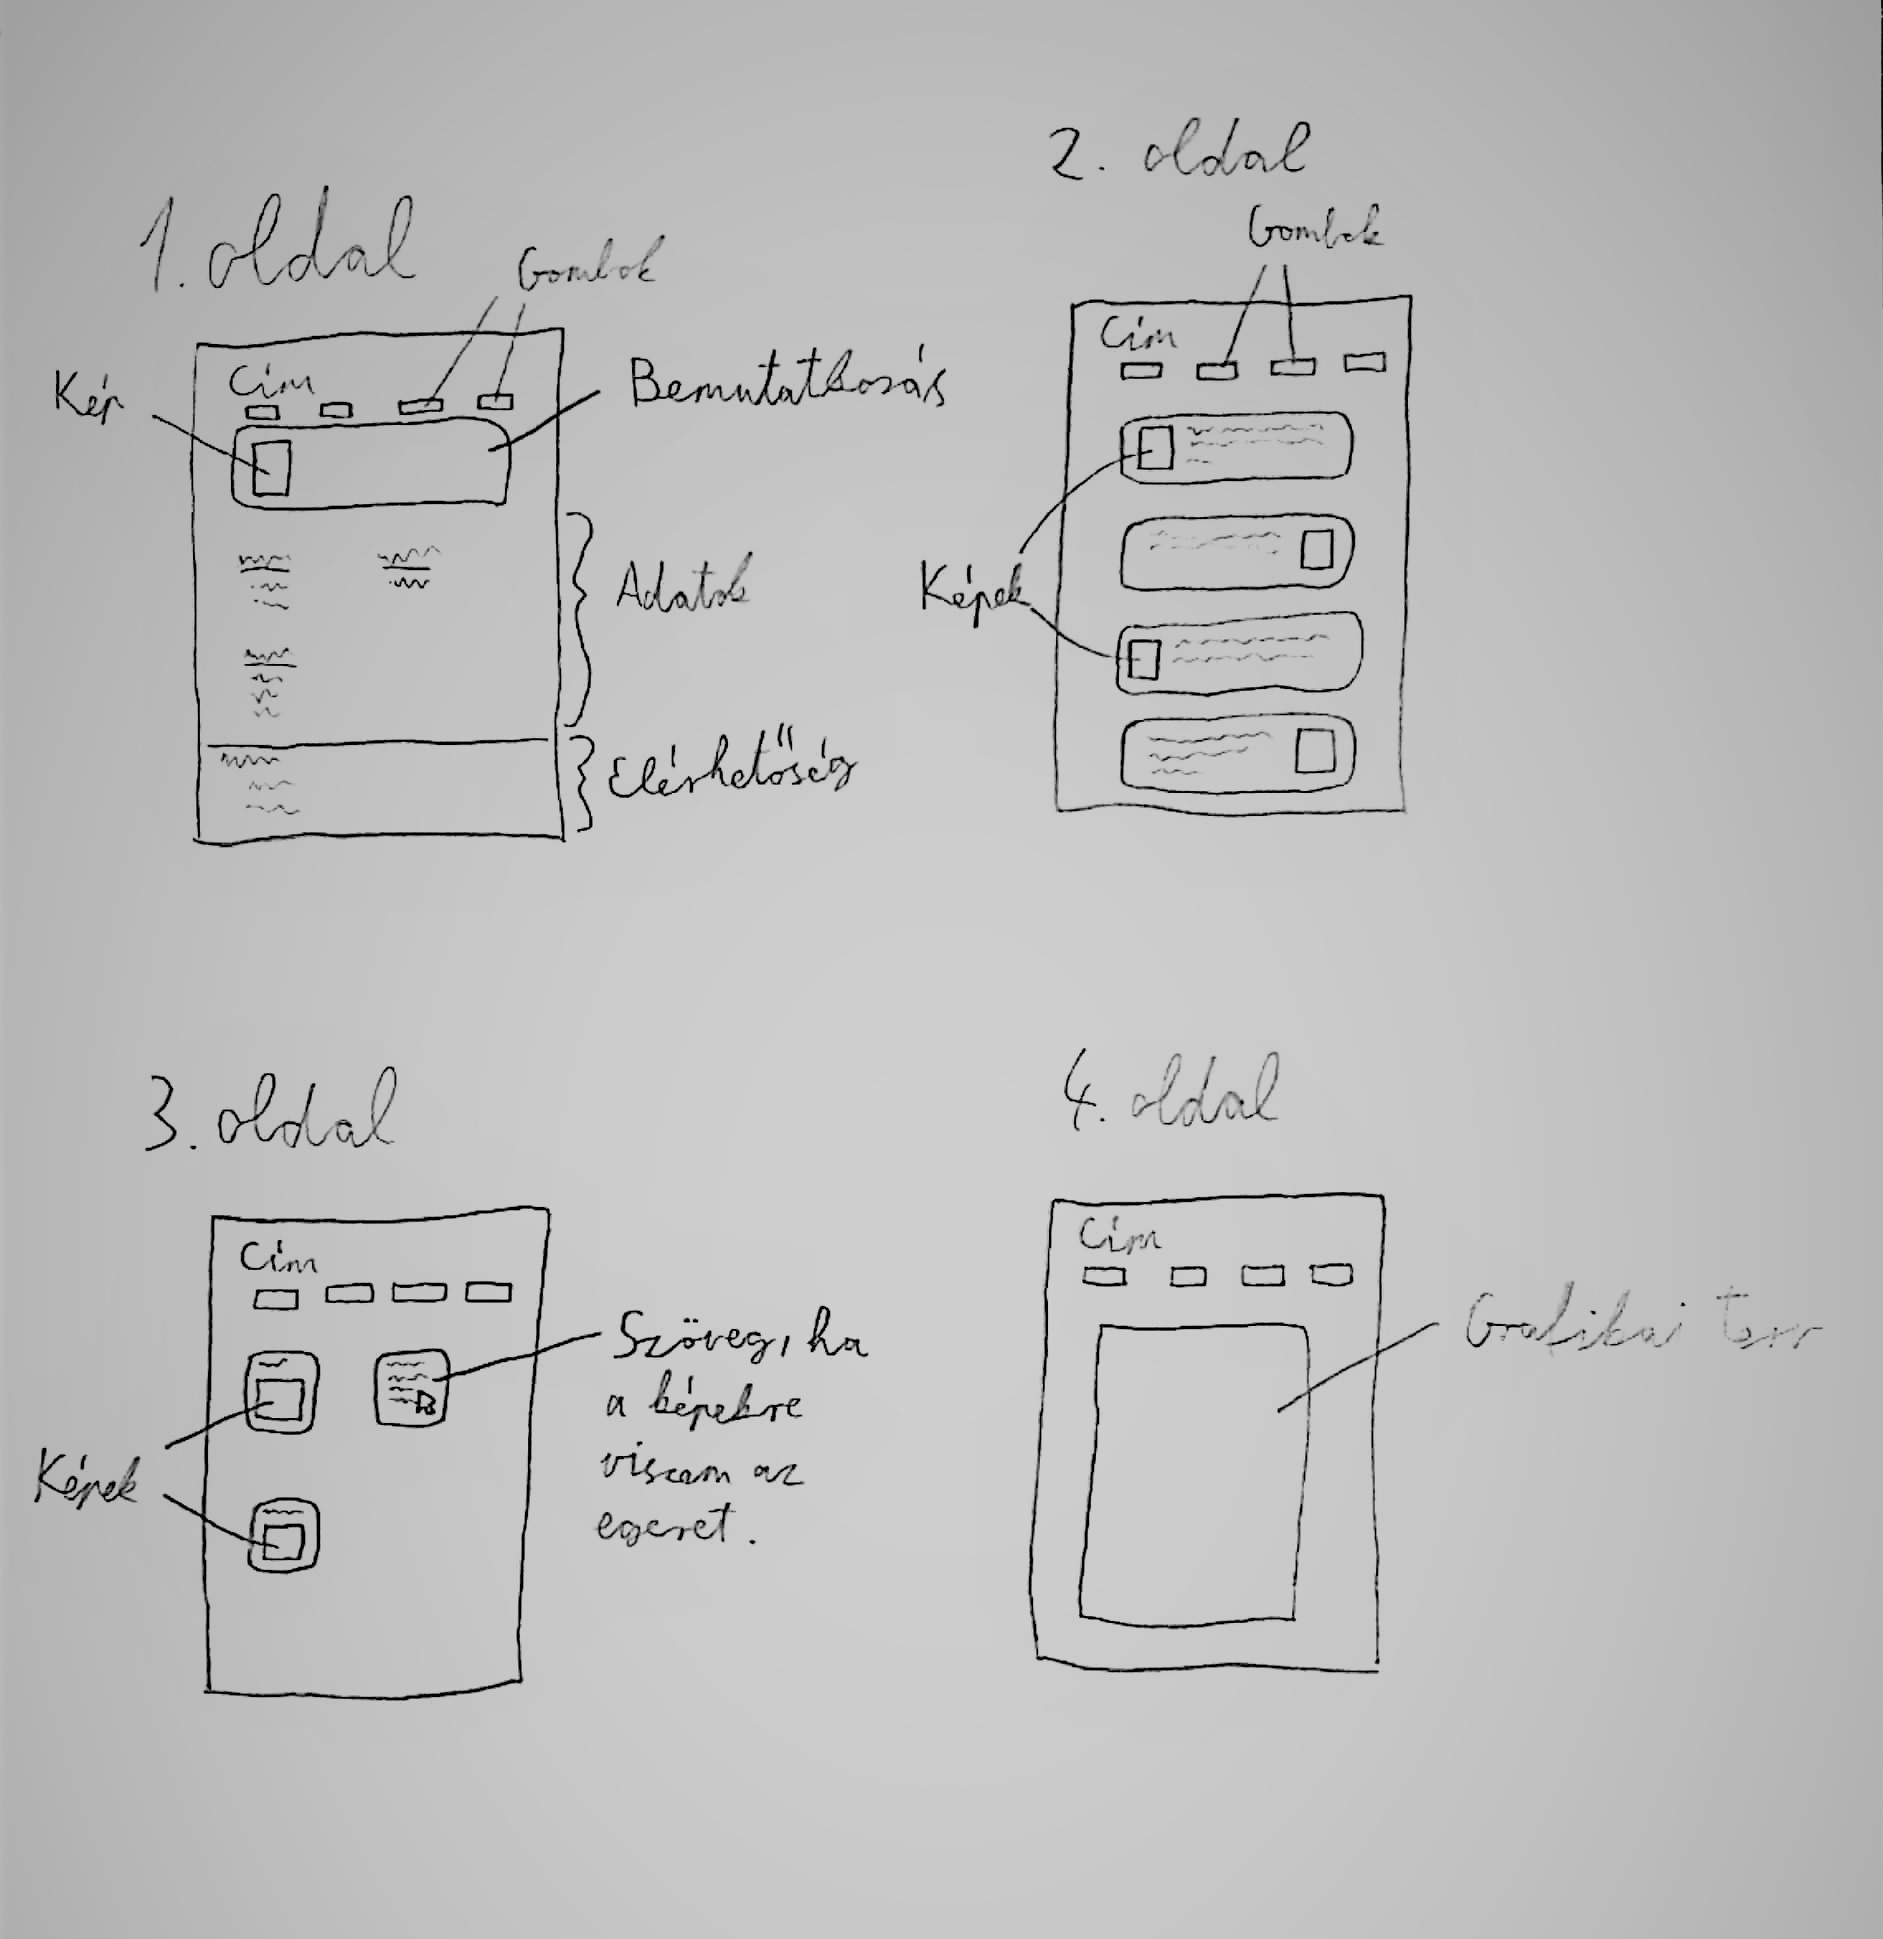 1. oldal
Gombok
Kép
Cím
Bemutatkozás
Adatok
Elérhetőség
2. oldal
Gombok
Cím
Képek
3. oldal
Cím
Képek
Szöveg, ha
a képekre
viszem az
egeret.
4. oldal
Cím
Grafikai